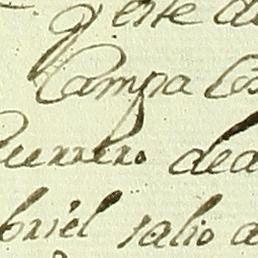 este
Campa
Guerrero dea
briel salio a